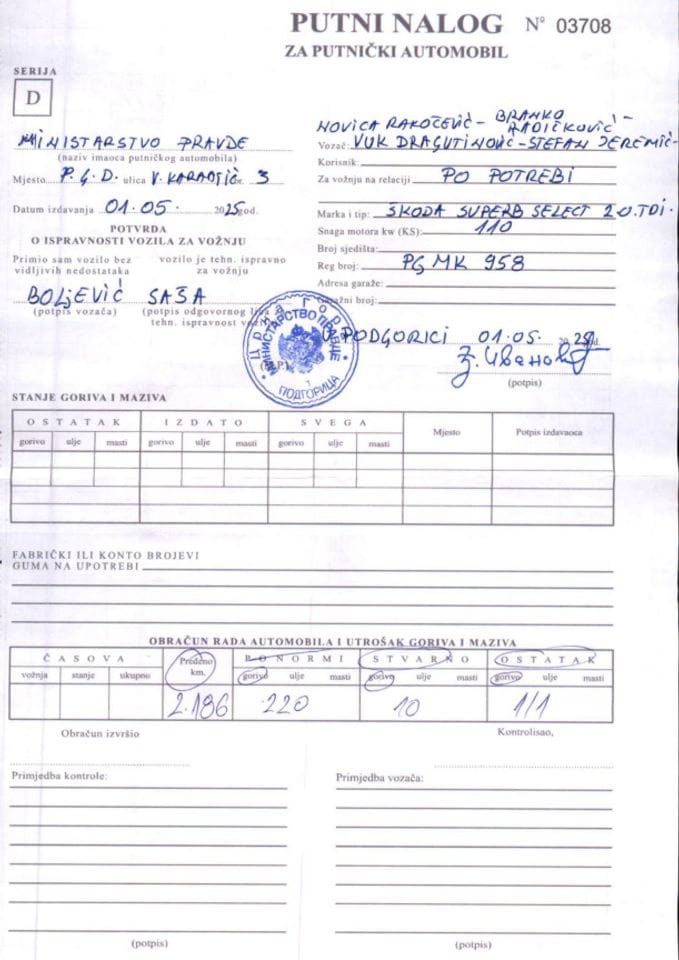 PUTNI NALOG Nº 03708
ZA PUTNIČKI AUTOMOBIL
SERIJA
D
MINISTARSTVO PRAVDE
(naziv imaoca putničkog automobila)
Mjesto P.G.D. ulica V. KARADŽIĆ 3
Datum izdavanja 01.05. 2025 god.
POTVRDA
O ISPRAVNOSTI VOZILA ZA VOŽNJU
Primio sam vozilo bez vidljivih nedostataka
vozilo je tehn. ispravno za vožnju
BOLJEVIĆ SAŠA
(potpis vozača) (potpis odgovornog lica tehn. ispravnost vozila)
NOVICA RAKOČEVIĆ - BRANKO RADIČKOVIĆ -
Vozač: VUK DRAGUTINOVIĆ - STEFAN JEREMIĆ -
Korisnik:
Za vožnju na relaciji PO POTREBI
Marka i tip: ŠKODA SUPERB SELECT 2.0. TDI.
Snaga motora kw (KS): 110
Broj sjedišta:
Reg broj: PG MK 958
Adresa garaže:
Garažni broj:
U PODGORICI 01.05. 2025
(M.P.)
(potpis)
Црна Гора
МИНИСТАРСТВО ПРАВДЕ
1
ПОДГОРИЦА
STANJE GORIVA I MAZIVA
OSTATAK IZDATO SVEGA Mjesto Potpis izdavaoca
gorivo ulje masti gorivo ulje masti gorivo ulje masti
FABRIČKI ILI KONTO BROJEVI
GUMA NA UPOTREBI
OBRAČUN RADA AUTOMOBILA I UTROŠAK GORIVA I MAZIVA
ČASOVA Pređeno km. PO NORMI STVARNO OSTATAK
vožnja stanje ukupno gorivo ulje masti gorivo ulje masti gorivo ulje masti
2.186 220 10 1/1
Obračun izvršio Kontrolisao,
Primjedba kontrole: Primjedba vozača:
(potpis) (potpis)